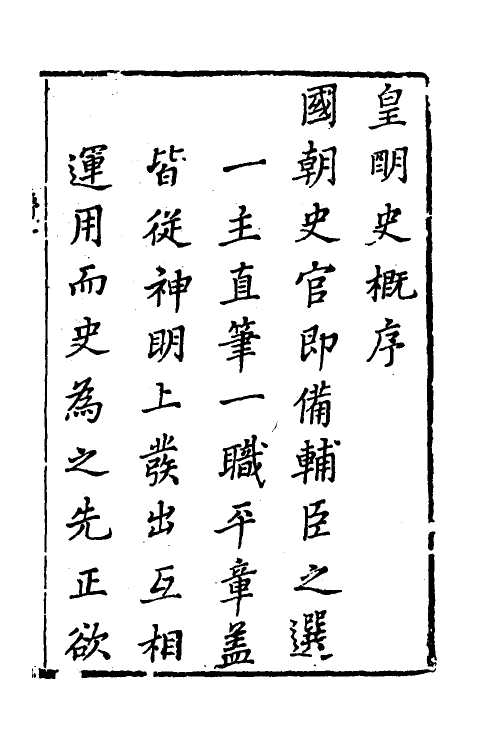 皇明史概序
國朝史官即備輔臣之選
一主直筆一職平章蓋
皆從神明上發出互相
運用而史為之先正欲